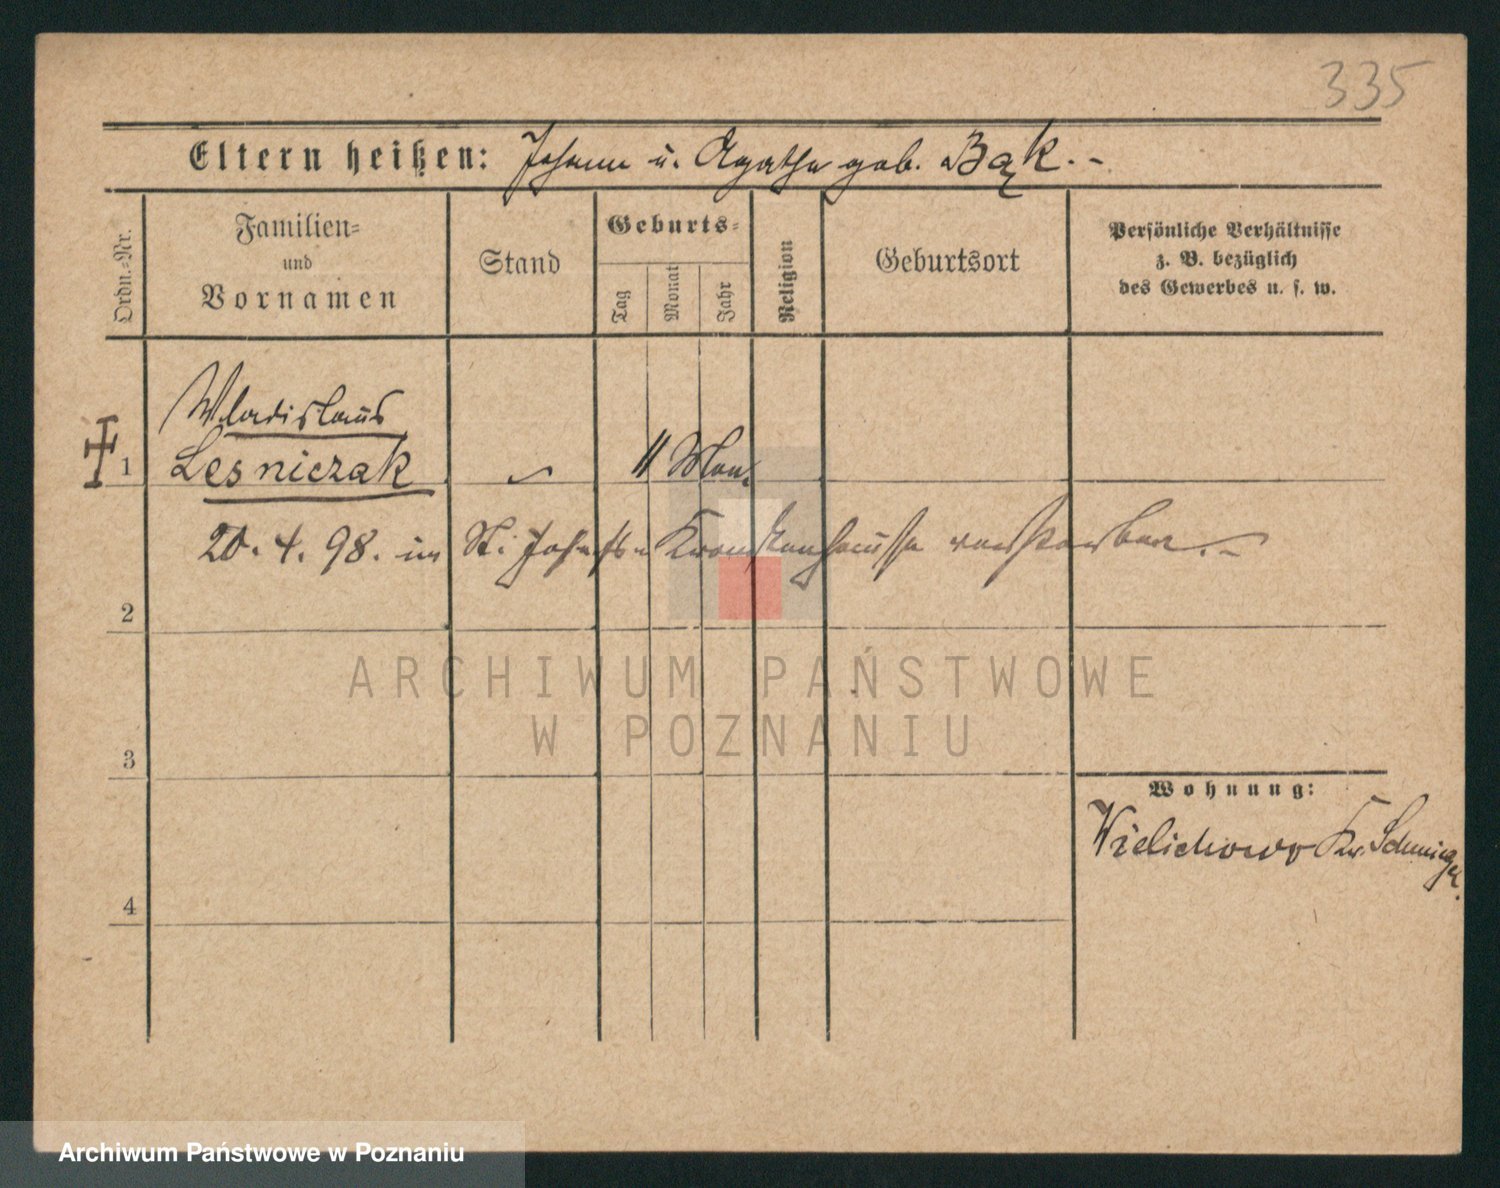 335
Eltern heißen: Johann u. Agatha geb. Bąk. -
Ordn.-Nr.
Familien=
und
Vornamen
Stand
Geburts=
Tag
Monat
Jahr
Religion
Geburtsort
Persönliche Verhältnisse
z. B. bezüglich
des Gewerbes u. s. w.
Wladislaus
1 Lesniczak 11 Mon.
20. 4. 98. im St. Josefs- Krankenhause verstorben. -
2
ARCHIWUM PAŃSTWOWE
W POZNANIU
3
Wohnung:
Wielichowo Kr. Schmiegel.
4
Archiwum Państwowe w Poznaniu